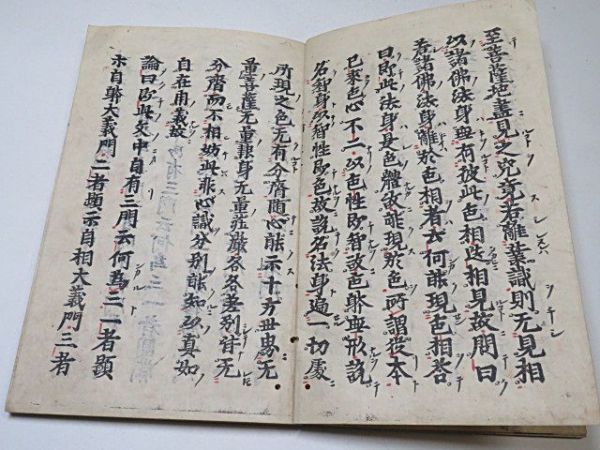 至菩薩地盡見之究竟若離業識則无見相
以諸佛法身无有彼此色相迭相見故問曰
若諸佛法身離於色相者云何能現色相荅
曰即此法身是色體故能現於色所謂從本
已來色心不二以色性即智故色躰無形說
名智身以智性即色故說名法身遍一切處
所現之色无有分齊隨心能示十方世界无
量菩薩无量報身无量莊嚴各各差別皆无
分齊而不相妨此非心識分別能知以真如
自在用義故
論曰即此文中自有三門云何為三一者顯
示自躰大義門二者顯示自相大義門三者